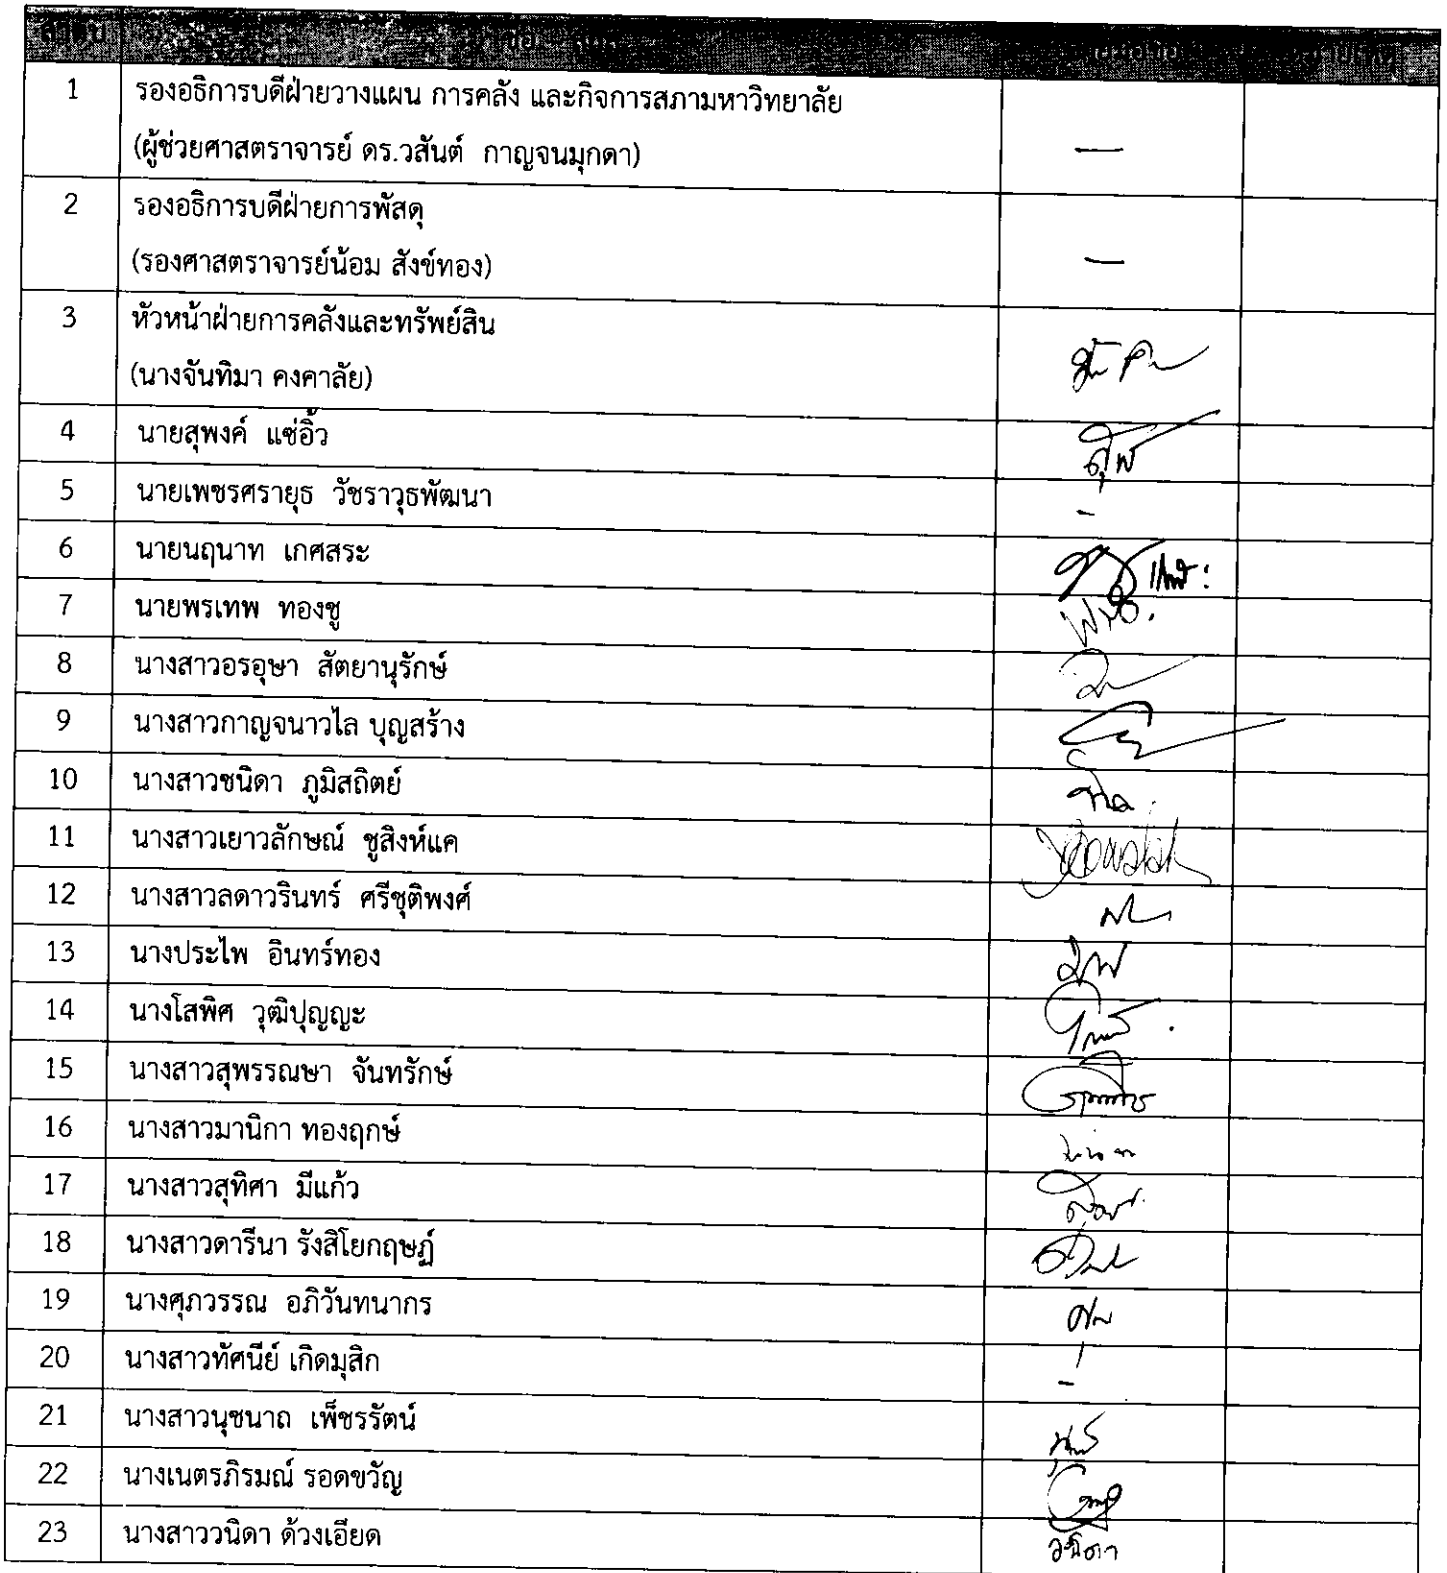 ลำดับ ชื่อ - สกุล ลายมือชื่อ
1 รองอธิการบดีฝ่ายวางแผน การคลัง และกิจการสภามหาวิทยาลัย
(ผู้ช่วยศาสตราจารย์ ดร.วสันต์ กาญจนมุกดา) —
2 รองอธิการบดีฝ่ายการพัสดุ
(รองศาสตราจารย์น้อม สังข์ทอง) —
3 หัวหน้าฝ่ายการคลังและทรัพย์สิน
(นางจันทิมา คงคาลัย)
4 นายสุพงค์ แซ่อิ้ว
5 นายเพชรศรายุธ วัชราวุธพัฒนา -
6 นายนฤนาท เกศสระ
7 นายพรเทพ ทองชู
8 นางสาวอรอุษา สัตยานุรักษ์
9 นางสาวกาญจนาวไล บุญสร้าง
10 นางสาวชนิดา ภูมิสถิตย์
11 นางสาวเยาวลักษณ์ ชูสิงห์แค
12 นางสาวลดาวรินทร์ ศรีชุติพงศ์
13 นางประไพ อินทร์ทอง
14 นางโสพิศ วุฒิปุญญะ
15 นางสาวสุพรรณษา จันทรักษ์
16 นางสาวมานิกา ทองฤกษ์
17 นางสาวสุทิศา มีแก้ว
18 นางสาวดารีนา รังสิโยกฤษฎ์
19 นางศุภวรรณ อภิวันทนากร
20 นางสาวทัศนีย์ เกิดมุสิก -
21 นางสาวนุชนาถ เพ็ชรรัตน์
22 นางเนตรภิรมณ์ รอดขวัญ
23 นางสาววนิดา ด้วงเอียด วนิดา